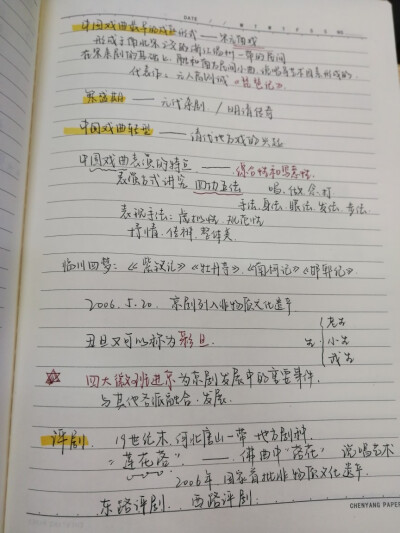 DATE
中国戏曲最早的成熟形式——宋元南戏
形成于南北宋之交的浙江温州一带的民间
在宋杂剧的基础上，融和南方民间小曲、说唱等艺术因素形成的.
代表作：元人高则诚《琵琶记》
鼎盛期——元代杂剧 / 明清传奇
中国戏曲转型——清代地方戏的兴起
中国戏曲表演的特点——综合性和写意性
表演方式讲究 四功五法 唱、做、念、打
手法、身法、眼法、发法、步法.
表现手法：虚拟性、规范性
抒情、传神、整体美
临川四梦：《紫钗记》《牡丹亭》《南柯记》《邯郸记》
2006.5.20. 京剧列入非物质文化遗产.
丑旦又可以称为彩旦.
生 老生
小生
武生
四大徽班进京为京剧发展中的重要事件.
与其他各派融合、发展.
评剧. 19世纪末. 河北唐山一带 地方剧种.
"莲花落"——佛曲中"落花" 说唱艺术
2006年 国家首批非物质文化遗产.
东路评剧. 西路评剧.
CHENYANG PAPER